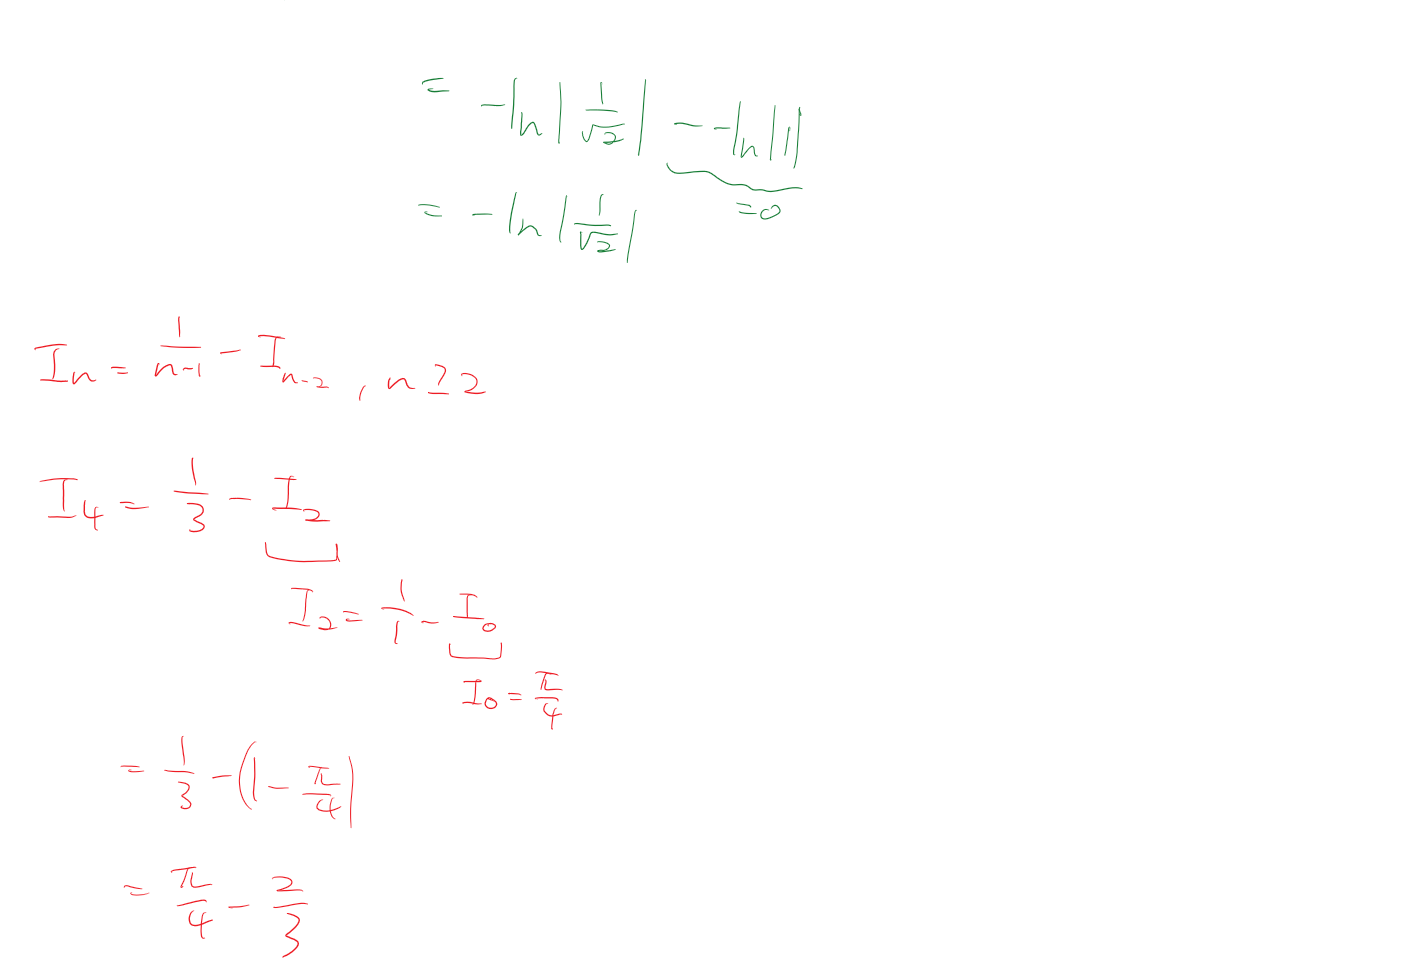 = -ln|1/√2| - -ln|1|
=0
= -ln|1/√2|
Iₙ = 1/(n-1) - Iₙ₋₂ , n ≥ 2
I₄ = 1/3 - I₂
I₂ = 1/1 - I₀
I₀ = π/4
= 1/3 - (1 - π/4)
= π/4 - 2/3